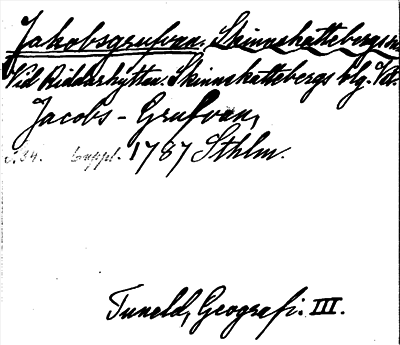 Jakobsgrufvan. Skinnskattebergs
Vid Riddarhyttan. Skinnskattebergs
Jacobs-Grufvan,
s. 34. Suppl. 1787 Sthlm.
Tuneld, Geografi. III.